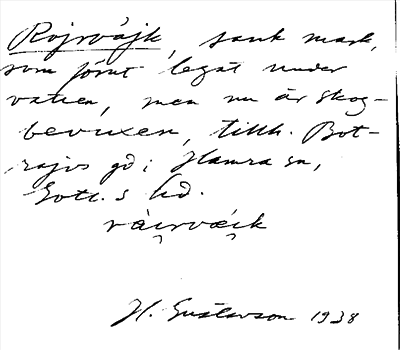 Rojrvàjk, sank mark,
som förut legat under
vatten, men nu är skog-
bevuxen, tillh. Bot-
rajvs gd i Hamra sn,
Gotl. s hd.
rài̯rvæi̯k
H. Gustavson 1938